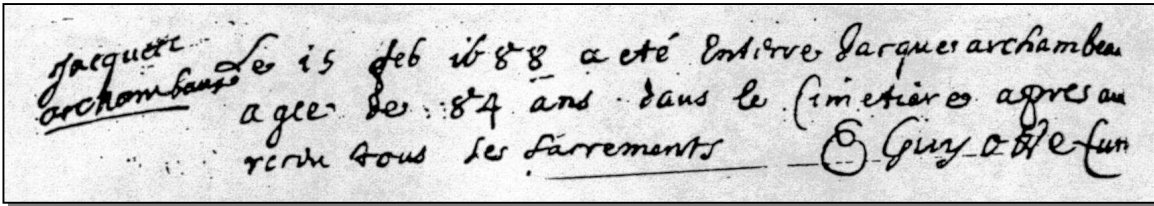 Jacques
archambaux
Le 15 feb 1688 a eté Entérre Jacques archambeau
agee de 84 ans dans le Cimetiere apres au
recu tous les sacrements E Guyotte Cur